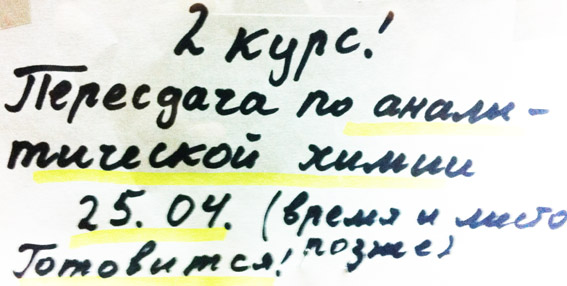 2 курс!
Пересдача по анали-
тической химии
25.04. (время и место
Готовится! позже)